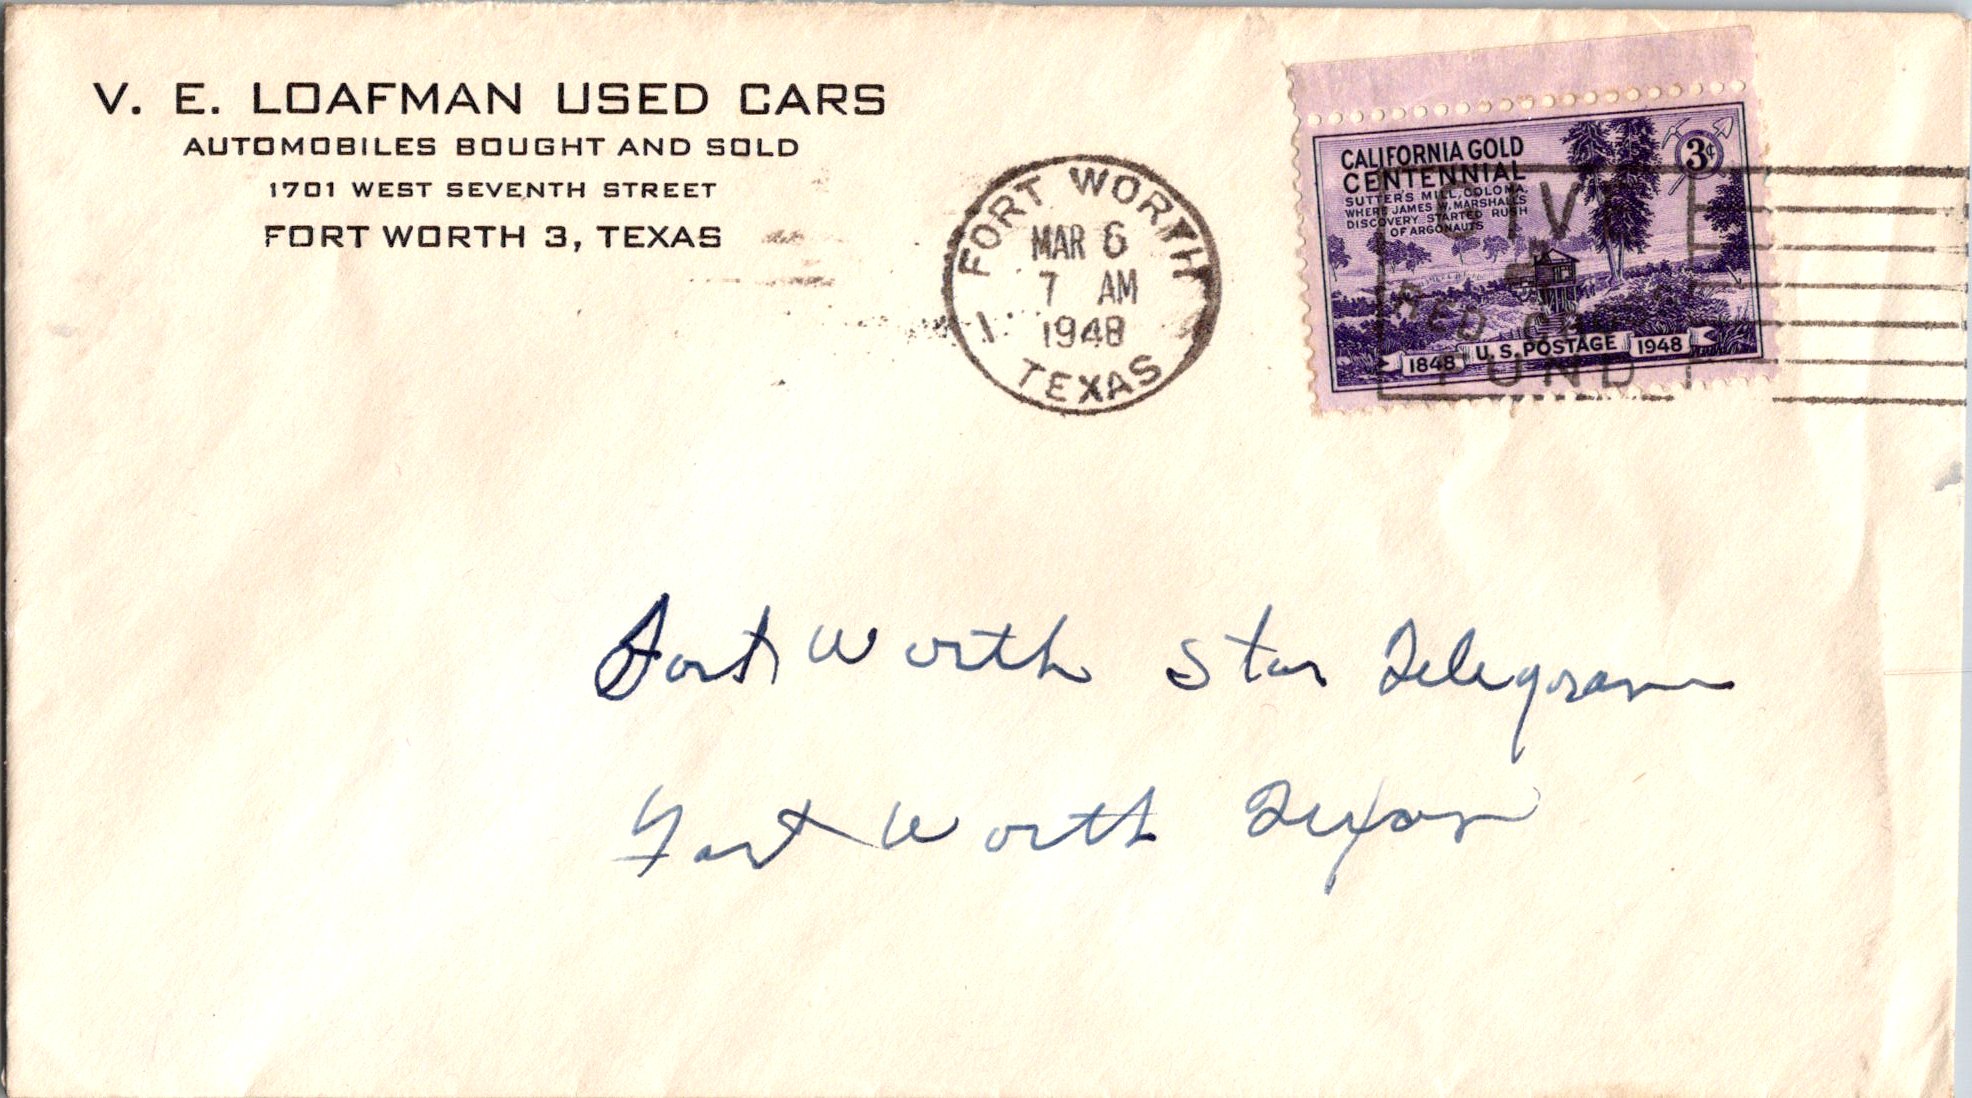 V. E. LOAFMAN USED CARS
AUTOMOBILES BOUGHT AND SOLD
1701 WEST SEVENTH STREET
FORT WORTH 3, TEXAS
FORT WORTH
MAR 6
7 AM
1948
1
TEXAS
CALIFORNIA GOLD
CENTENNIAL
SUTTER'S MILL, COLOMA,
WHERE JAMES W. MARSHALL'S
DISCOVERY STARTED RUSH
OF ARGONAUTS
3¢
1848 U.S. POSTAGE 1948
GIVE
RED CROSS
FUND
Fort Worth Star Telegram
Fort Worth Texas